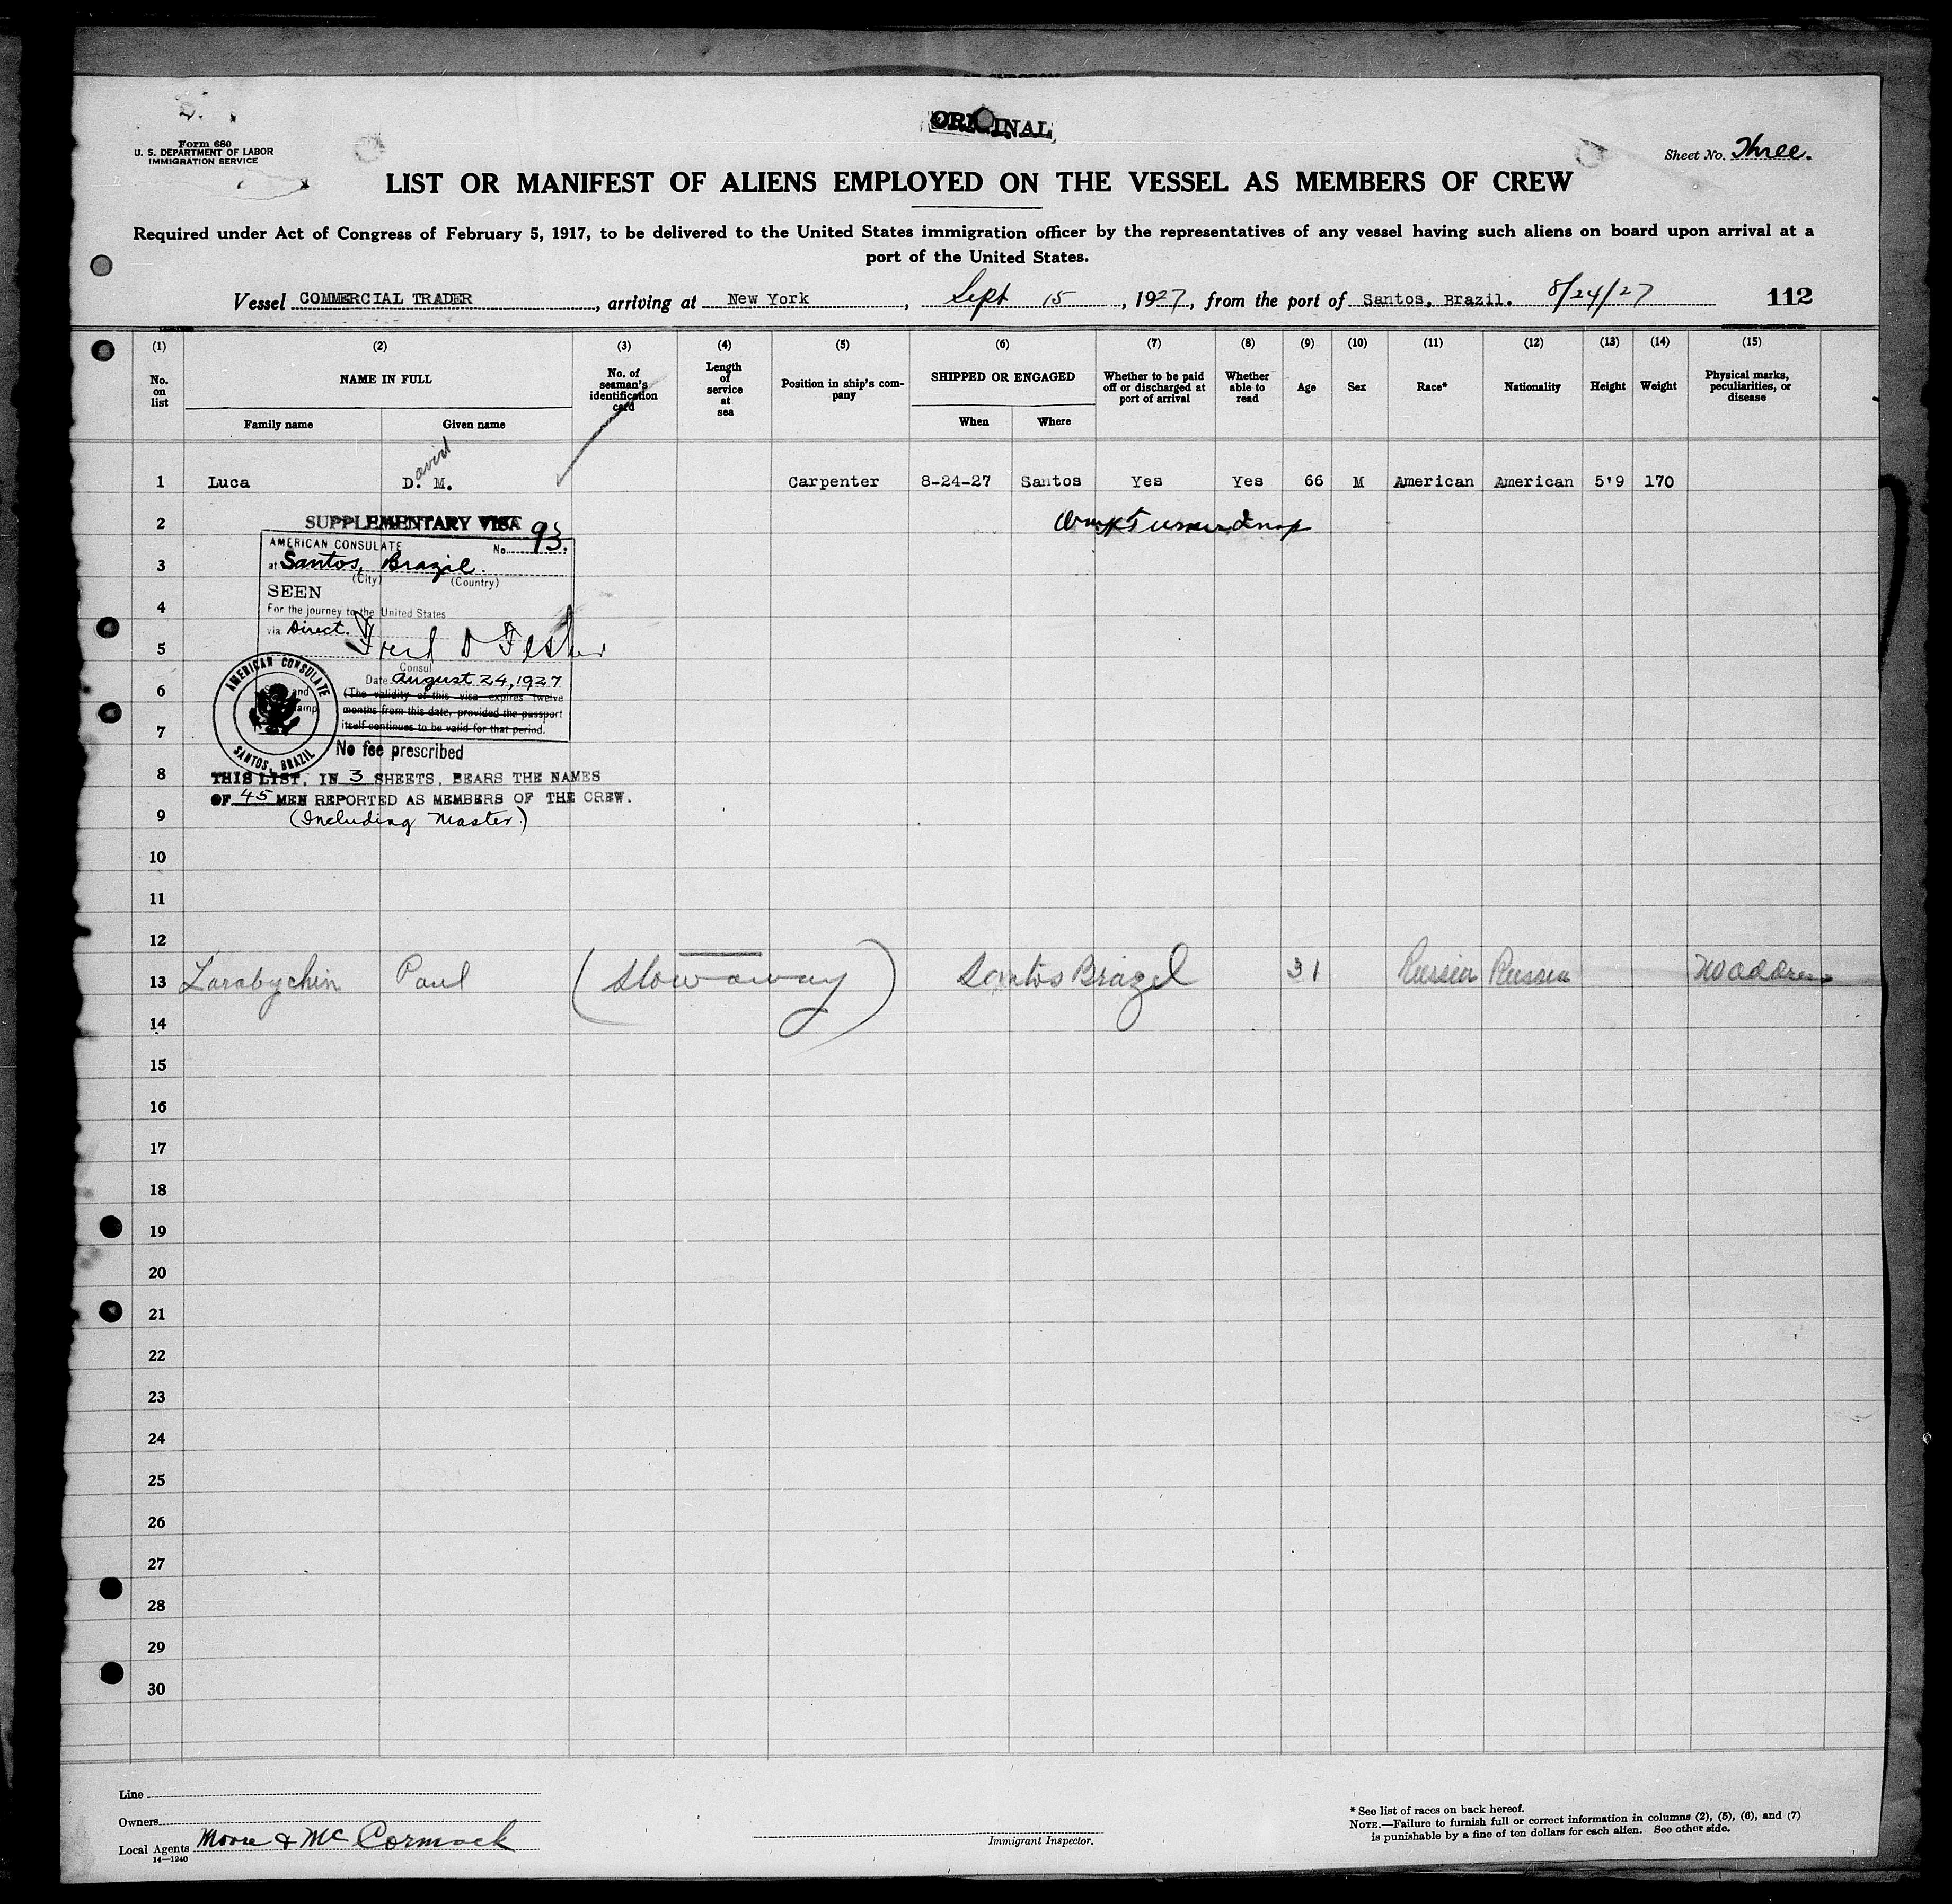 ORIGINAL
Form 680
U. S. DEPARTMENT OF LABOR
IMMIGRATION SERVICE
Sheet No. Three.
LIST OR MANIFEST OF ALIENS EMPLOYED ON THE VESSEL AS MEMBERS OF CREW
Required under Act of Congress of February 5, 1917, to be delivered to the United States immigration officer by the representatives of any vessel having such aliens on board upon arrival at a
port of the United States.
Vessel COMMERCIAL TRADER, arriving at New York, Sept 15, 1927, from the port of Santos, Brazil. 8/24/27 112
(1) (2) (3) (4) (5) (6) (7) (8) (9) (10) (11) (12) (13) (14) (15)
No. on list
NAME IN FULL
Family name
Given name
No. of seaman's identification card
Length of service at sea
Position in ship's company
SHIPPED OR ENGAGED
When
Where
Whether to be paid off or discharged at port of arrival
Whether able to read
Age
Sex
Race*
Nationality
Height
Weight
Physical marks, peculiarities, or disease
avid
1 Luca D. M. Carpenter 8-24-27 Santos Yes Yes 66 M American American 5'9 170
2
SUPPLEMENTARY VISA
AMERICAN CONSULATE No. 93.
3
at Santos, Brazil.
(City) (Country)
SEEN
4
For the journey to the United States
via Direct.
5
Consul
Date August 24, 1927
6
(The validity of this visa expires twelve
months from this date, provided the passport
7
itself continues to be valid for that period.
AMERICAN CONSULATE
SANTOS, BRAZIL
No fee prescribed
8
THIS LIST, IN 3 SHEETS, BEARS THE NAMES
OF 45 MEN REPORTED AS MEMBERS OF THE CREW.
9
(Including Master.)
10
11
12
13 Paul (Stowaway) Santos Brazil 31 Russia Russia No address
14
15
16
17
18
19
20
21
22
23
24
25
26
27
28
29
30
Line
Owners
Local Agents Moore & McCormack
14—1240
Immigrant Inspector.
* See list of races on back hereof.
NOTE.—Failure to furnish full or correct information in columns (2), (5), (6), and (7)
is punishable by a fine of ten dollars for each alien. See other side.